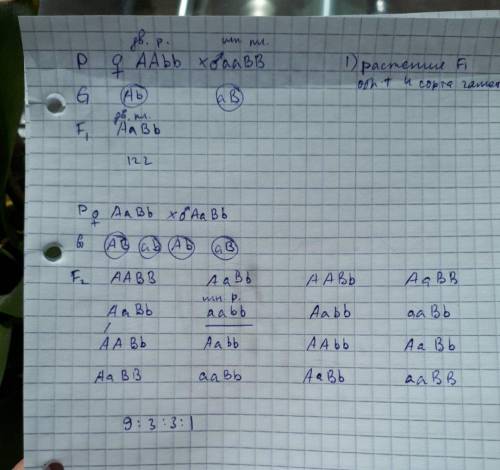 дв. р. мн. пл.
P ♀ AAbb × ♂aaBB 1) растение F1
G Ab aB обр-т 4 сорта гамет
дв. пл.
F1 AaBb
122
P ♀ AaBb × ♂AaBb
G AB ab Ab aB
F2 AABB AaBb AABb AaBB
мн. р.
AaBb aabb Aabb aaBb
AABb Aabb AAbb AaBb
AaBB aaBb AaBb aaBB
9:3:3:1